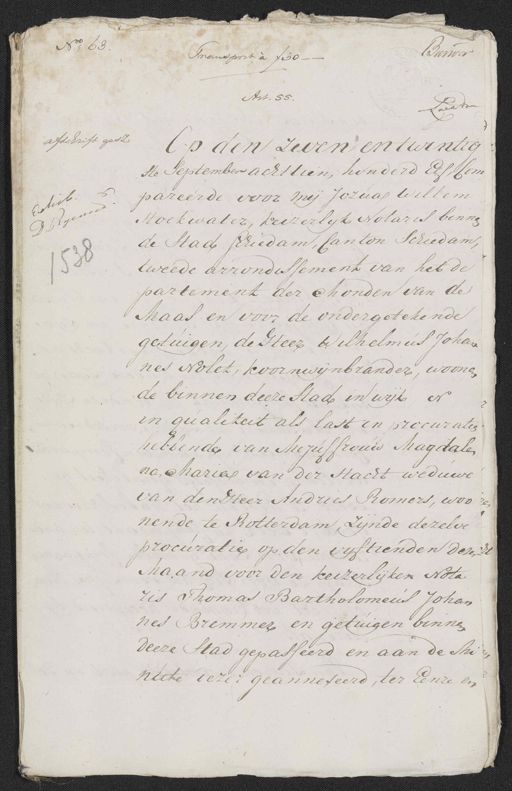 No 63.
Transport à f 50 —
Art. 55.
afschrift
1538
Op den Zeven en twintig
ste September achttien, honderd Elf Com
pareerde voor mij Jozua Willem
Hoekwater, Keizerlijk Notaris binne
de Stad Schiedam, Canton Schiedam,
tweede arrondissement van het de
partement der Monden van de
Maas en voor de ondergetekende
getuigen, de Heer Wilhelmus Joha
nes Nolet, koornwijnbrander, woonen
de binnen deeze Stad in wijk N
in qualiteit als last en procuratie
hebbende van Mejuffrouw Magdale
na Maria van der Hacht weduwe
van den Heer Andries Romers, woo
nende te Rotterdam, Zijnde dezelve
procuratie op den vyftienden dezer
Maand voor den keizerlijken Nota
ris Thomas Bartholomeus Johan
nes Bremmer en getuigen binnen
deeze Stad gepasseerd en aan de Mi
nute dezer geannexeerd, ter Eenre en